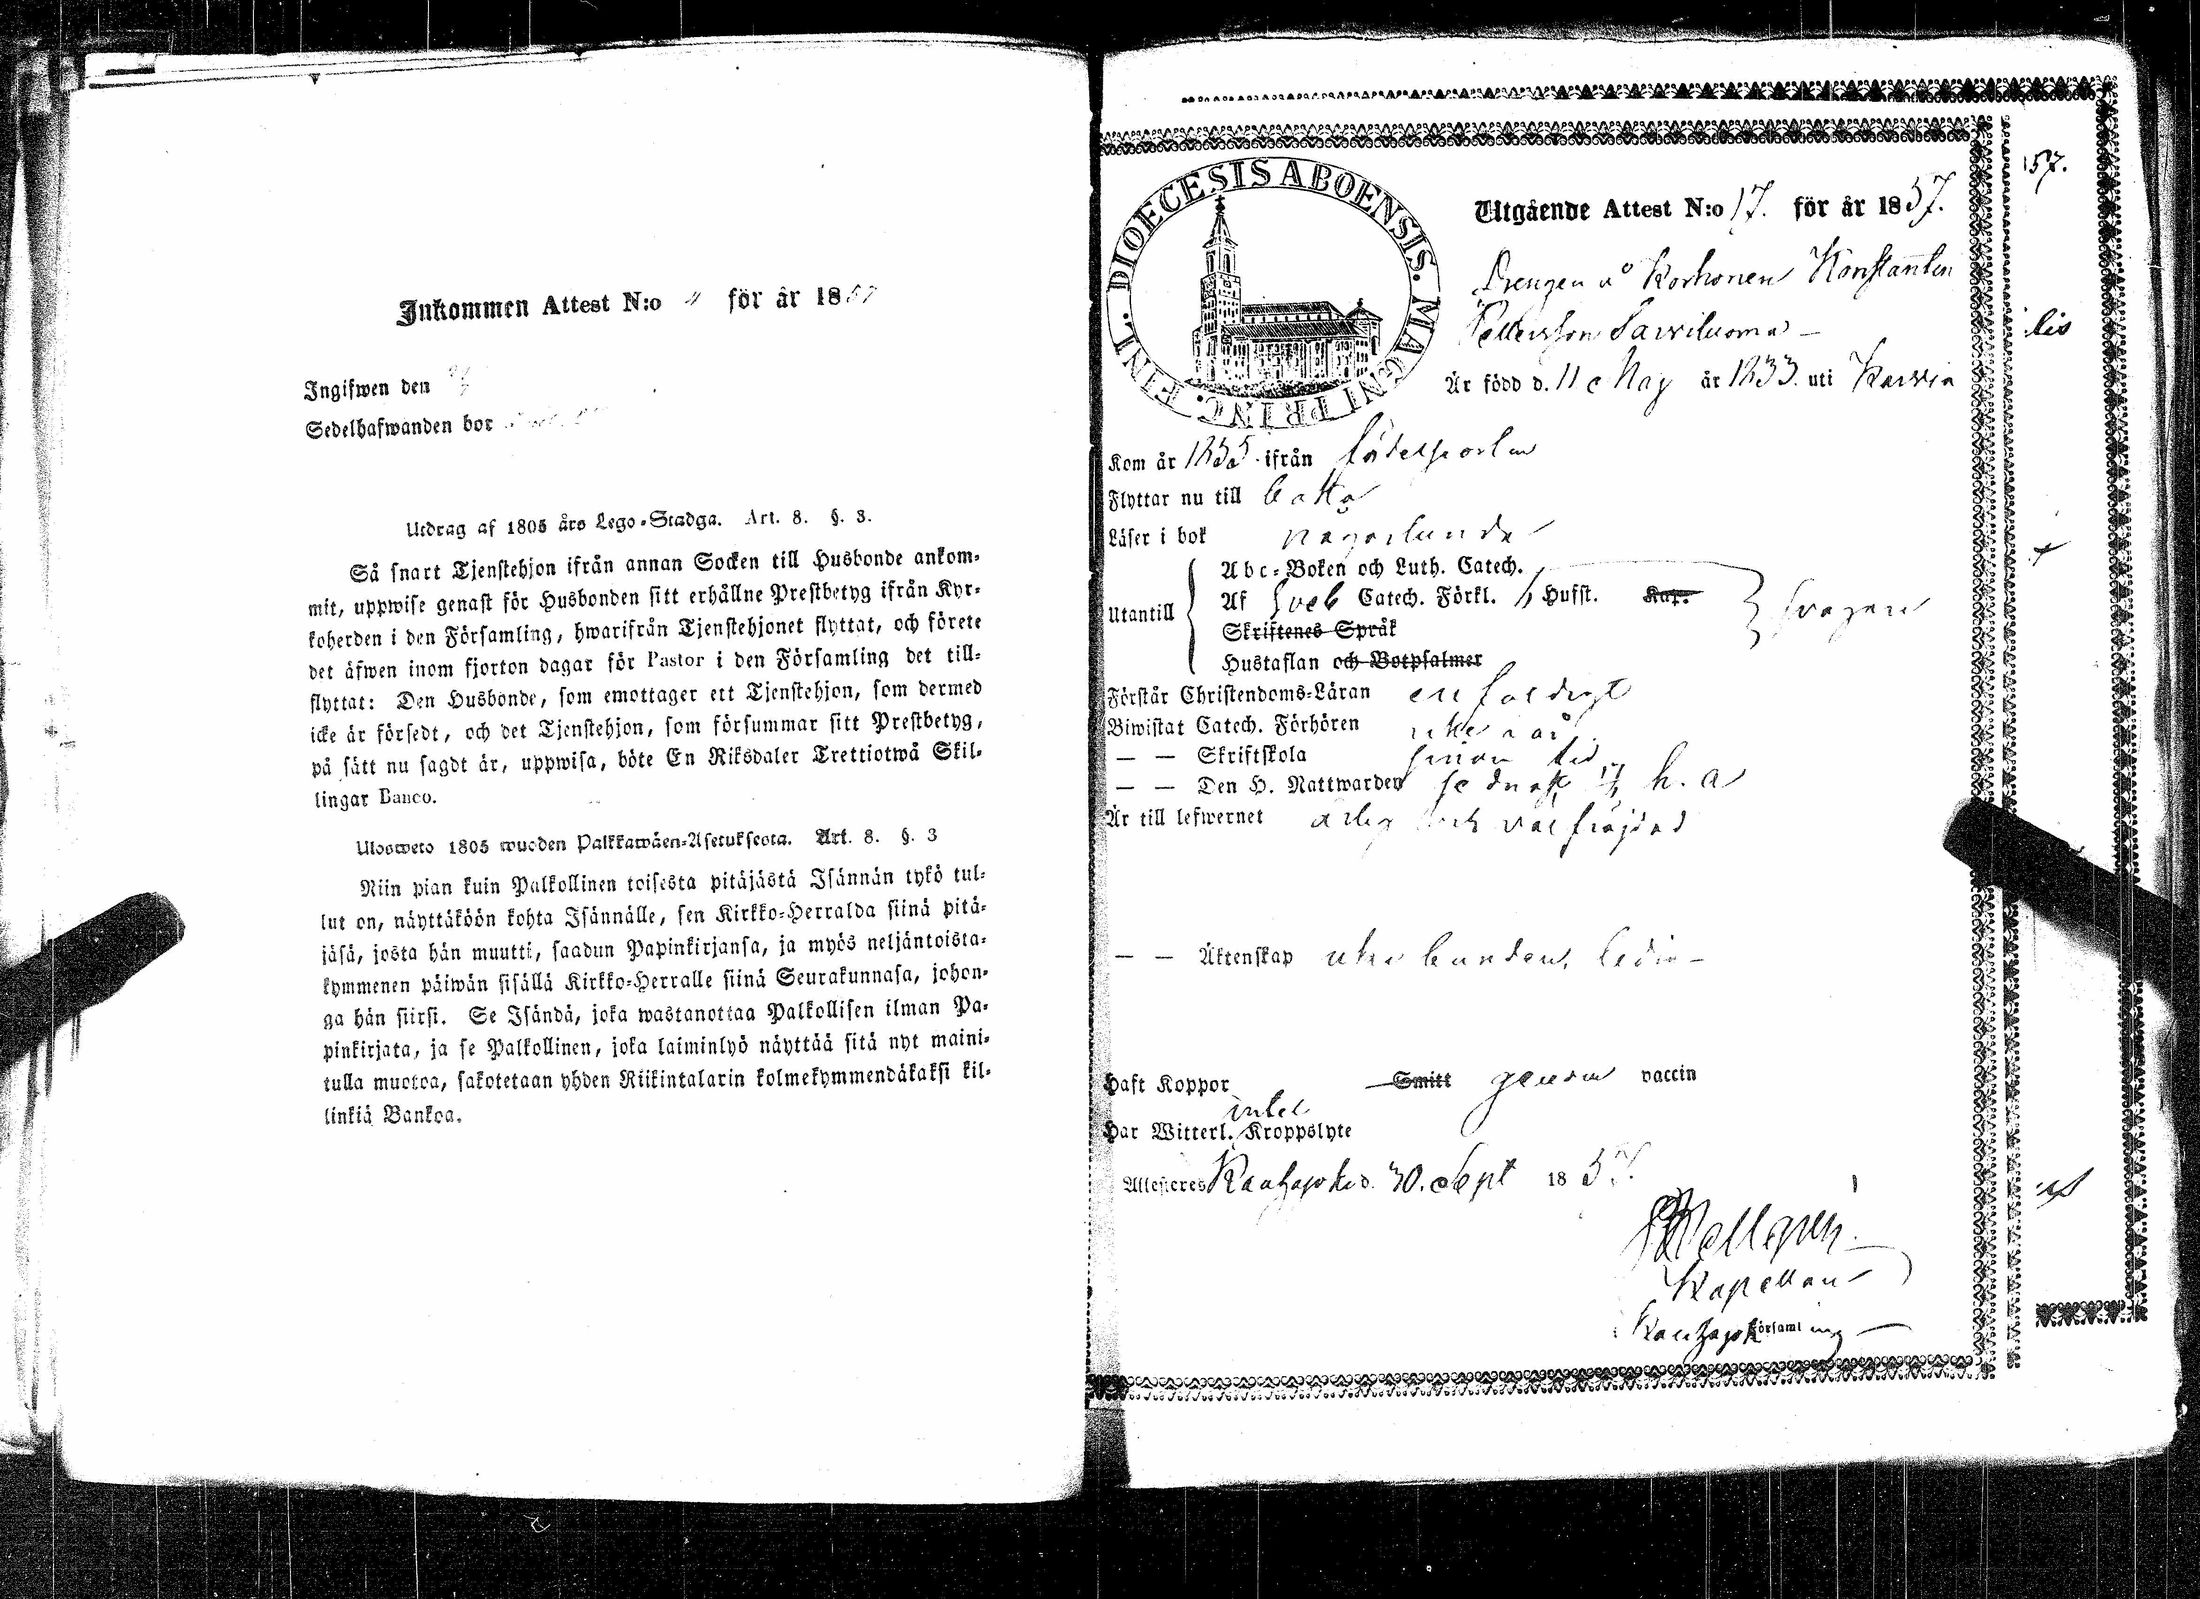 Inkommen Attest N:o för år 1857
Ingifwen den
Sedelhafwanden bor
Utdrag af 1805 års Lego-Stadga. Art. 8. §. 3.
Så snart Tjenstehjon ifrån annan Socken till Husbonde ankom-
mit, uppwise genast för Husbonden sitt erhållne Prestbetyg ifrån Kyr-
koherden i den Församling, hwarifrån Tjenstehjonet flyttat, och förete
det äfwen inom fjorton dagar för Pastor i den Församling det till-
flyttat: Den Husbonde, som emottager ett Tjenstehjon, som dermed
icke är försedt, och det Tjenstehjon, som försummar sitt Prestbetyg,
på sätt nu sagdt är, uppwisa, böte En Riksdaler Trettiotwå Skil-
lingar Banco.
Ulosweto 1805 wuoden Palkkawäen-Asetuksesta. Art. 8. §. 3
Niin pian kuin Palkollinen toisesta pitäjästä Isännän tykö tul-
lut on, näyttäköön kohta Isännälle, sen Kirkko-Herralda siinä pitä-
jäsä, josta hän muutti, saadun Papinkirjansa, ja myös neljäntoista-
kymmenen päiwän sisällä Kirkko-Herralle siinä Seurakunnasa, johon-
ga hän siirsi. Se Isändä, joka wastanottaa Palkollisen ilman Pa-
pinkirjata, ja se Palkollinen, joka laiminlyö näyttää sitä nyt maini-
tulla muotoa, sakotetaan yhden Riikintalarin kolmekymmendäkaksi kil-
linkiä Bankoa.
DIOECESIS ABOENSIS. MAGNI PRINC. FINL.
Utgående Attest N:o 17. för år 1857.
Drengen å Korhonen Konstantin
Pettersson Sarviluoma
Är född d. 11 Maj år 1833. uti Karvia
Kom år 1835 ifrån födelseorten
Flyttar nu till
Läser i bok någorlunda
Utantill
Abc-Boken och Luth. Catech.
Af Sveb Catech. Förkl. Husf. Kap. frågan
Skriftenes Språk
Hustaflan och Botpsalmer
Förstår Christendoms-Läran enfaldigt
Biwistat Catech. Förhören
— — Skriftskola sinom tid
— — Den H. Nattwarden sednast h. a
Är till lefwernet ärlig och välfrejdad
— — Äktenskap obunden, ledig
Haft Koppor Smitt genom vaccin
Har Witterl. intet Kroppslyte
Attesteres Kauhajoki d. 30. Sept 1857.
Kapellan
Kauhajoki Församling
57.
lis